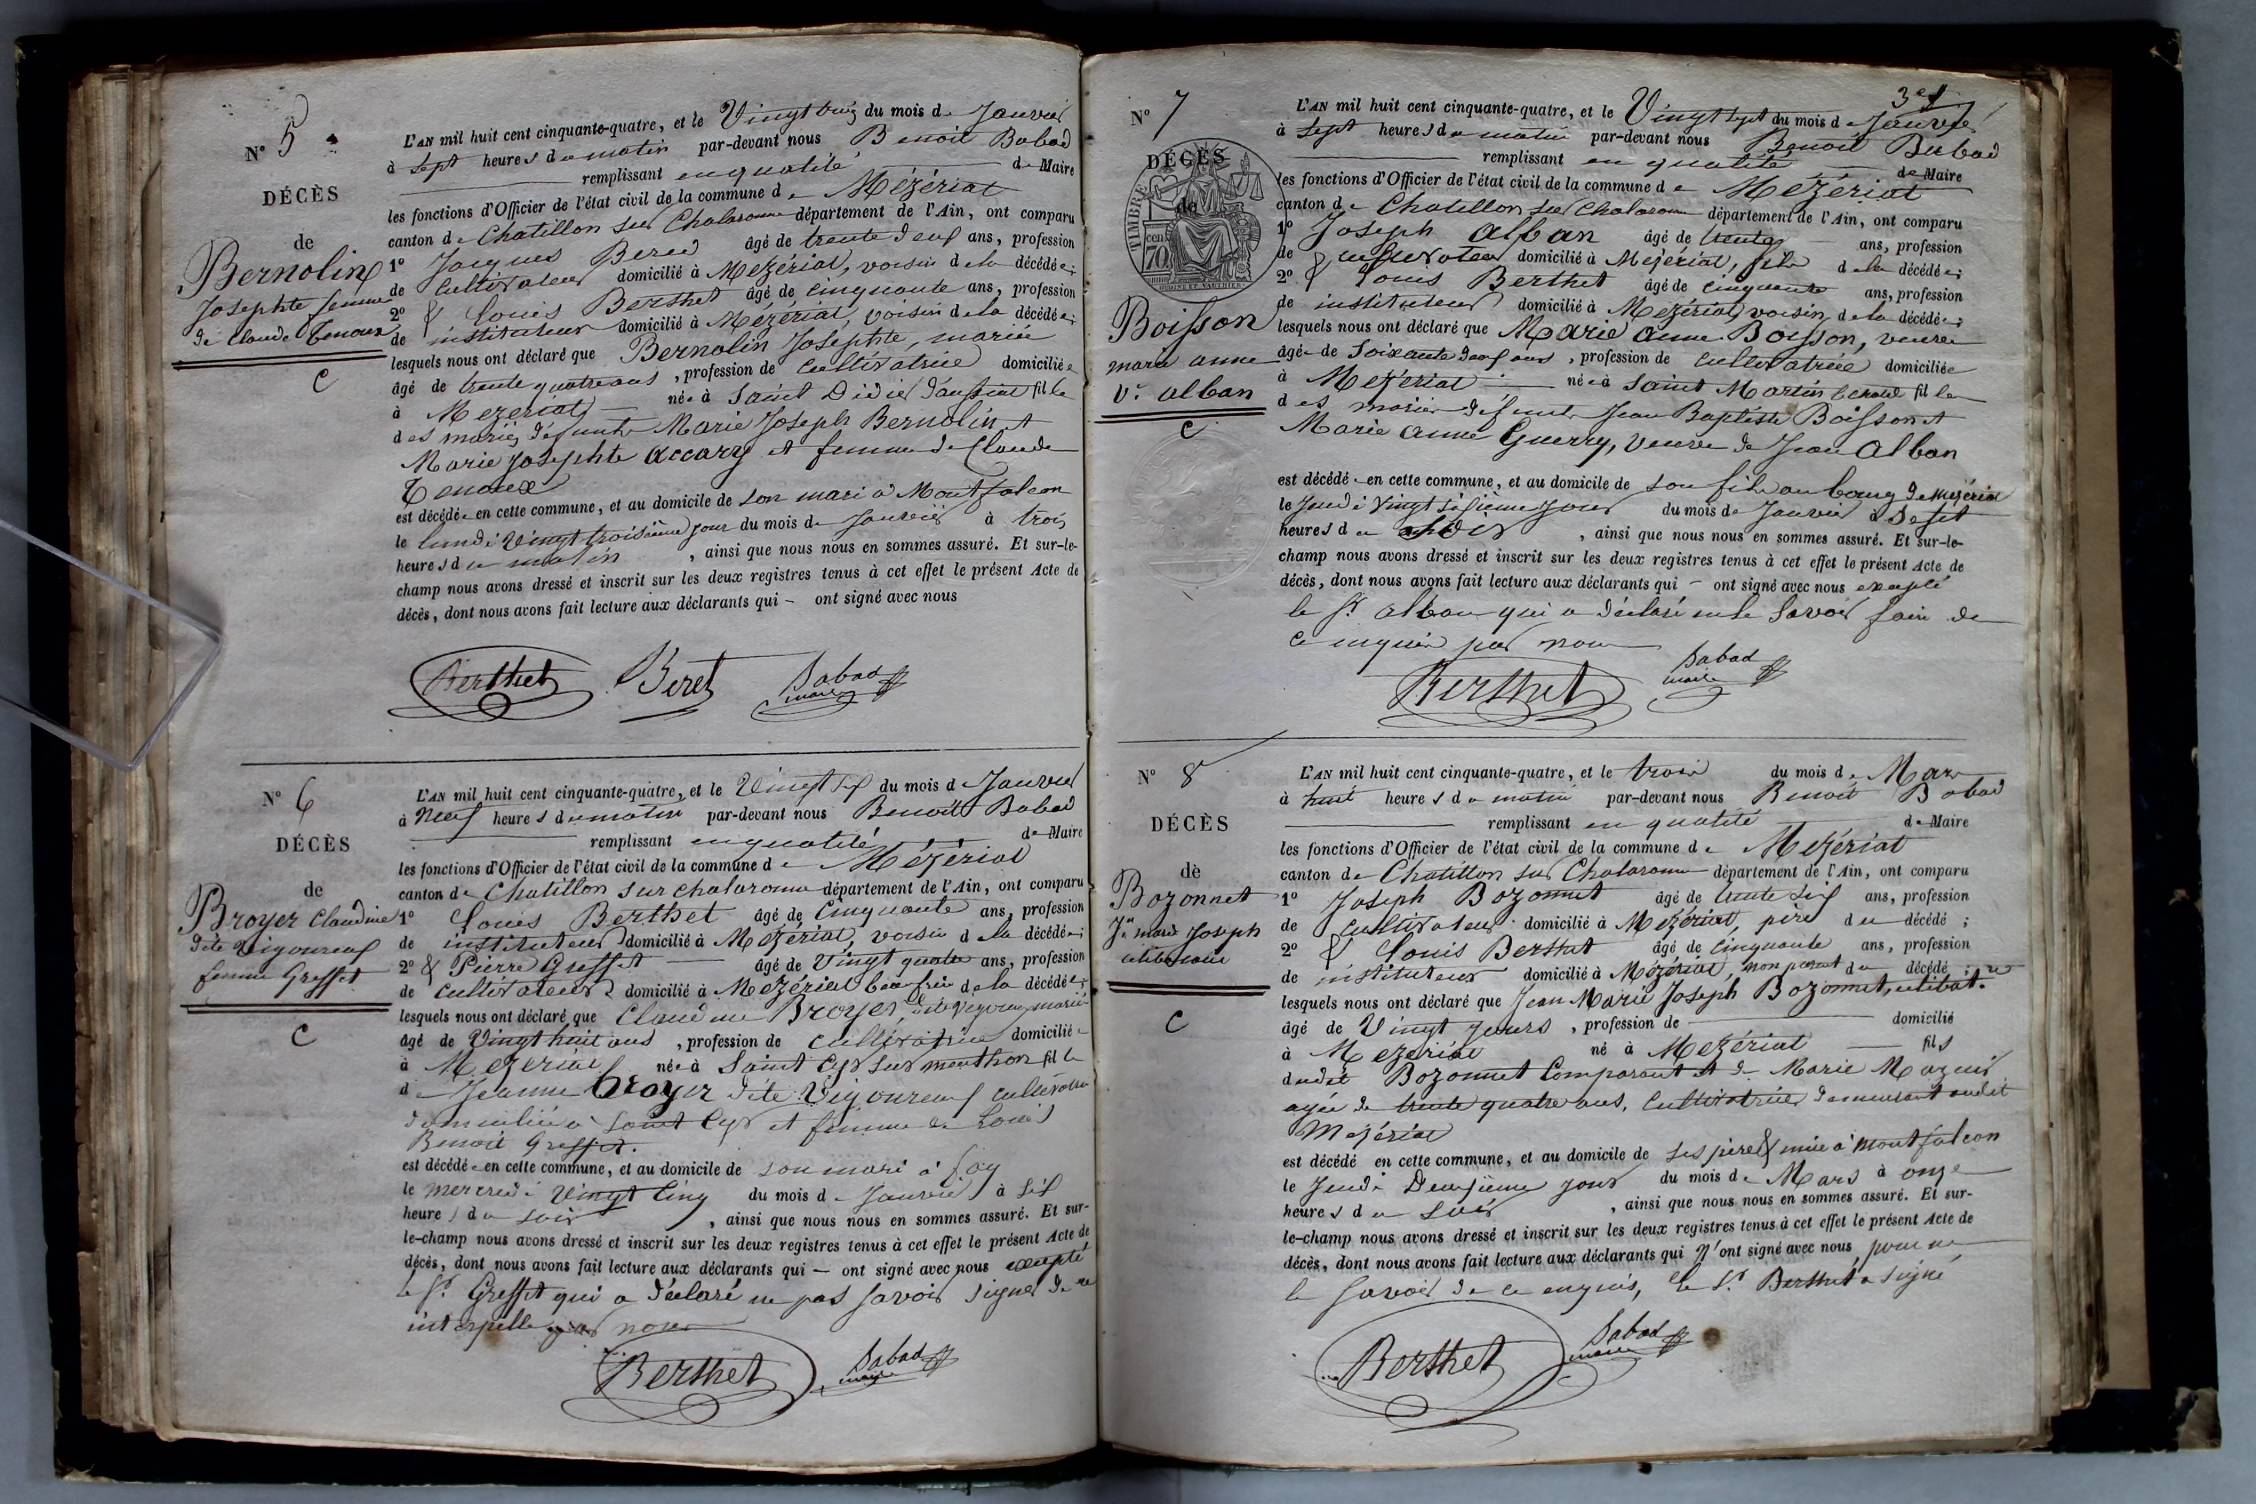 N° 5
DÉCÈS
de
Bernolin
Josephte femme
de Claude Tenoux
C
L'AN mil huit cent cinquante-quatre, et le Vingt trois du mois de Janvier
à sept heures du matin par-devant nous Benoit Babad
remplissant en qualité de Maire
les fonctions d'Officier de l'état civil de la commune de Mézériat
canton de Chatillon sur Chalaronne département de l'Ain, ont comparu
1° Jacques Beret âgé de trente deux ans, profession
de cultivateur domicilié à Mézériat, voisin de la décédée;
2° & Louis Berthet âgé de cinquante ans, profession
de instituteur domicilié à Mézériat, voisin de la décédée;
lesquels nous ont déclaré que Bernolin Josephte, mariée
âgé de trente quatre ans, profession de cultivatrice domiciliée
à Mezeriat née à Saint Didier d'aussiat fille
des mariés défunts Marie Joseph Bernolin et
Marie Josephte Accary et femme de Claude
Tenoux
est décédée en cette commune, et au domicile de son mari à Montfalcon
le lundi vingt troisième jour du mois de Janvier à trois
heures du matin, ainsi que nous nous en sommes assuré. Et sur-le-
champ nous avons dressé et inscrit sur les deux registres tenus à cet effet le présent Acte de
décès, dont nous avons fait lecture aux déclarants qui — ont signé avec nous
Berthet Beret Babad
maire
N° 6
DÉCÈS
de
Broyer Claudine
dite Vigoureux
femme Greffet
C
L'AN mil huit cent cinquante-quatre, et le Vingt six du mois de Janvier
à neuf heures du matin par-devant nous Benoit Babad
remplissant en qualité de Maire
les fonctions d'Officier de l'état civil de la commune de Mézériat
canton de Chatillon sur chalaronne département de l'Ain, ont comparu
1° Louis Berthet âgé de Cinquante ans, profession
de instituteur domicilié à Mézériat, voisin de la décédée;
2° & Pierre Greffet âgé de vingt quatre ans, profession
de cultivateur domicilié à Mézériat beau frère de la décédée;
lesquels nous ont déclaré que Claudine Broyer, dite Vigoureux mariée
âgé de Vingt huit ans, profession de cultivatrice domiciliée
à Mezeriat née à Saint Cyr sur menthon fille
de Jeanne Broyer dite Vigoureux cultivatrice
domiciliée à Saint Cyr et femme de Louis
Benoit Greffet.
est décédée en cette commune, et au domicile de son mari à Fay
le mercredi vingt cinq du mois de Janvier à six
heures du soir, ainsi que nous nous en sommes assuré. Et sur-
le-champ nous avons dressé et inscrit sur les deux registres tenus à cet effet le présent Acte de
décès, dont nous avons fait lecture aux déclarants qui — ont signé avec nous excepté
le Sr. Greffet qui a déclaré ne pas savoir signer de ce
interpellé par nous
Berthet Babad
maire
3
N° 7
DÉCÈS
de
TIMBRE
70 cen
Boisson
marie anne
Ve. alban
C
L'AN mil huit cent cinquante-quatre, et le Vingt sept du mois de Janvier
à sept heures du matin par-devant nous Benoit Babad
remplissant en qualité de Maire
les fonctions d'Officier de l'état civil de la commune de Mézériat
canton de Chatillon sur Chalaronne département de l'Ain, ont comparu
1° Joseph alban âgé de trente ans, profession
de cultivateur domicilié à Mézériat, fils de la décédée;
2° & Louis Berthet âgé de cinquante ans, profession
de instituteur domicilié à Mézériat, voisin de la décédée;
lesquels nous ont déclaré que Marie anne Boisson, veuve
âgée de soixante deux ans, profession de cultivatrice domiciliée
à Mezeriat née à Saint Martin le chatel fille
des mariés défunts Jean Baptiste Boisson et
Marie anne Guerry, veuve de Jean Alban
est décédée en cette commune, et au domicile de son fils au bourg de Mézériat
le Jeudi vingt sixième jour du mois de Janvier à Sept
heures du soir, ainsi que nous nous en sommes assuré. Et sur-le-
champ nous avons dressé et inscrit sur les deux registres tenus à cet effet le présent Acte de
décès, dont nous avons fait lecture aux déclarants qui — ont signé avec nous excepté
le Sr. alban qui a déclaré ne le savoir faire de
ce enquis par nous
Berthet Babad
maire
N° 8
DÉCÈS
de
Bozonnet
Jn marie Joseph
célibataire
C
L'AN mil huit cent cinquante-quatre, et le trois du mois de Mars
à huit heures du matin par-devant nous Benoit Babad
remplissant en qualité de Maire
les fonctions d'Officier de l'état civil de la commune de Mézériat
canton de Chatillon sur Chalaronne département de l'Ain, ont comparu
1° Joseph Bozonnet âgé de trente six ans, profession
de cultivateur domicilié à Mézériat, père du décédé;
2° & Louis Berthet âgé de cinquante ans, profession
de instituteur domicilié à Mézériat, non parent du décédé;
lesquels nous ont déclaré que Jean Marie Joseph Bozonnet, célibat.re
âgé de Vingt jours, profession de domicilié
à Mezeriat né à Mézériat fils
dudit Bozonnet Comparant et de Marie Mazuir
agée de trente quatre ans, cultivatrice demeurant audit
Mézériat
est décédé en cette commune, et au domicile de ses père & mère à montfalcon
le Jeudi Deuxième jour du mois de Mars à onze
heures du soir, ainsi que nous nous en sommes assuré. Et sur-
le-champ nous avons dressé et inscrit sur les deux registres tenus à cet effet le présent Acte de
décès, dont nous avons fait lecture aux déclarants qui n'ont signé avec nous pour ne
le savoir de ce enquis, le Sr. Berthet a signé
Berthet Babad
maire